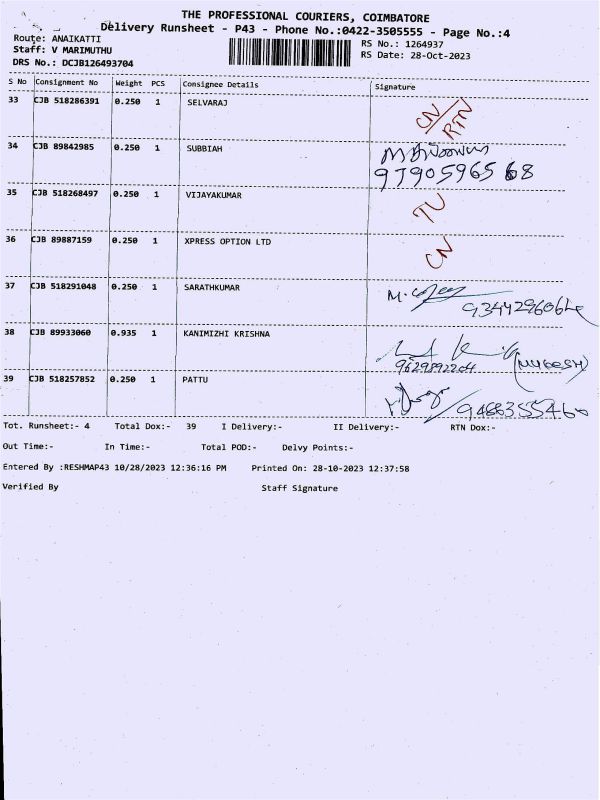 THE PROFESSIONAL COURIERS, COIMBATORE
Delivery Runsheet - P43 - Phone No.:0422-3505555 - Page No.:4
Route: ANAIKATTI
RS No.: 1264937
Staff: V MARIMUTHU
RS Date: 28-Oct-2023
DRS No.: DCJB126493704
S No Consignment No Weight PCS Consignee Details Signature
33 CJB 518286391 0.250 1 SELVARAJ CN/RTN
34 CJB 89842985 0.250 1 SUBBIAH
9790596568
35 CJB 518268497 0.250 1 VIJAYAKUMAR TU
36 CJB 89887159 0.250 1 XPRESS OPTION LTD CN
37 CJB 518291048 0.250 1 SARATHKUMAR
38 CJB 89933060 0.935 1 KANIMIZHI KRISHNA
9629892204 (MUGESH)
39 CJB 518257852 0.250 1 PATTU
Tot. Runsheet:- 4 Total Dox:- 39 I Delivery:- II Delivery:- RTN Dox:-
Out Time:- In Time:- Total POD:- Delvy Points:-
Entered By :RESHMAP43 10/28/2023 12:36:16 PM Printed On: 28-10-2023 12:37:58
Verified By Staff Signature